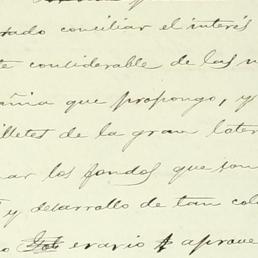 conciliar el interés
te considerable de las
que propongo, y
billetes de la gran
los fondos que son
y desarrollo de tan
erario aprove